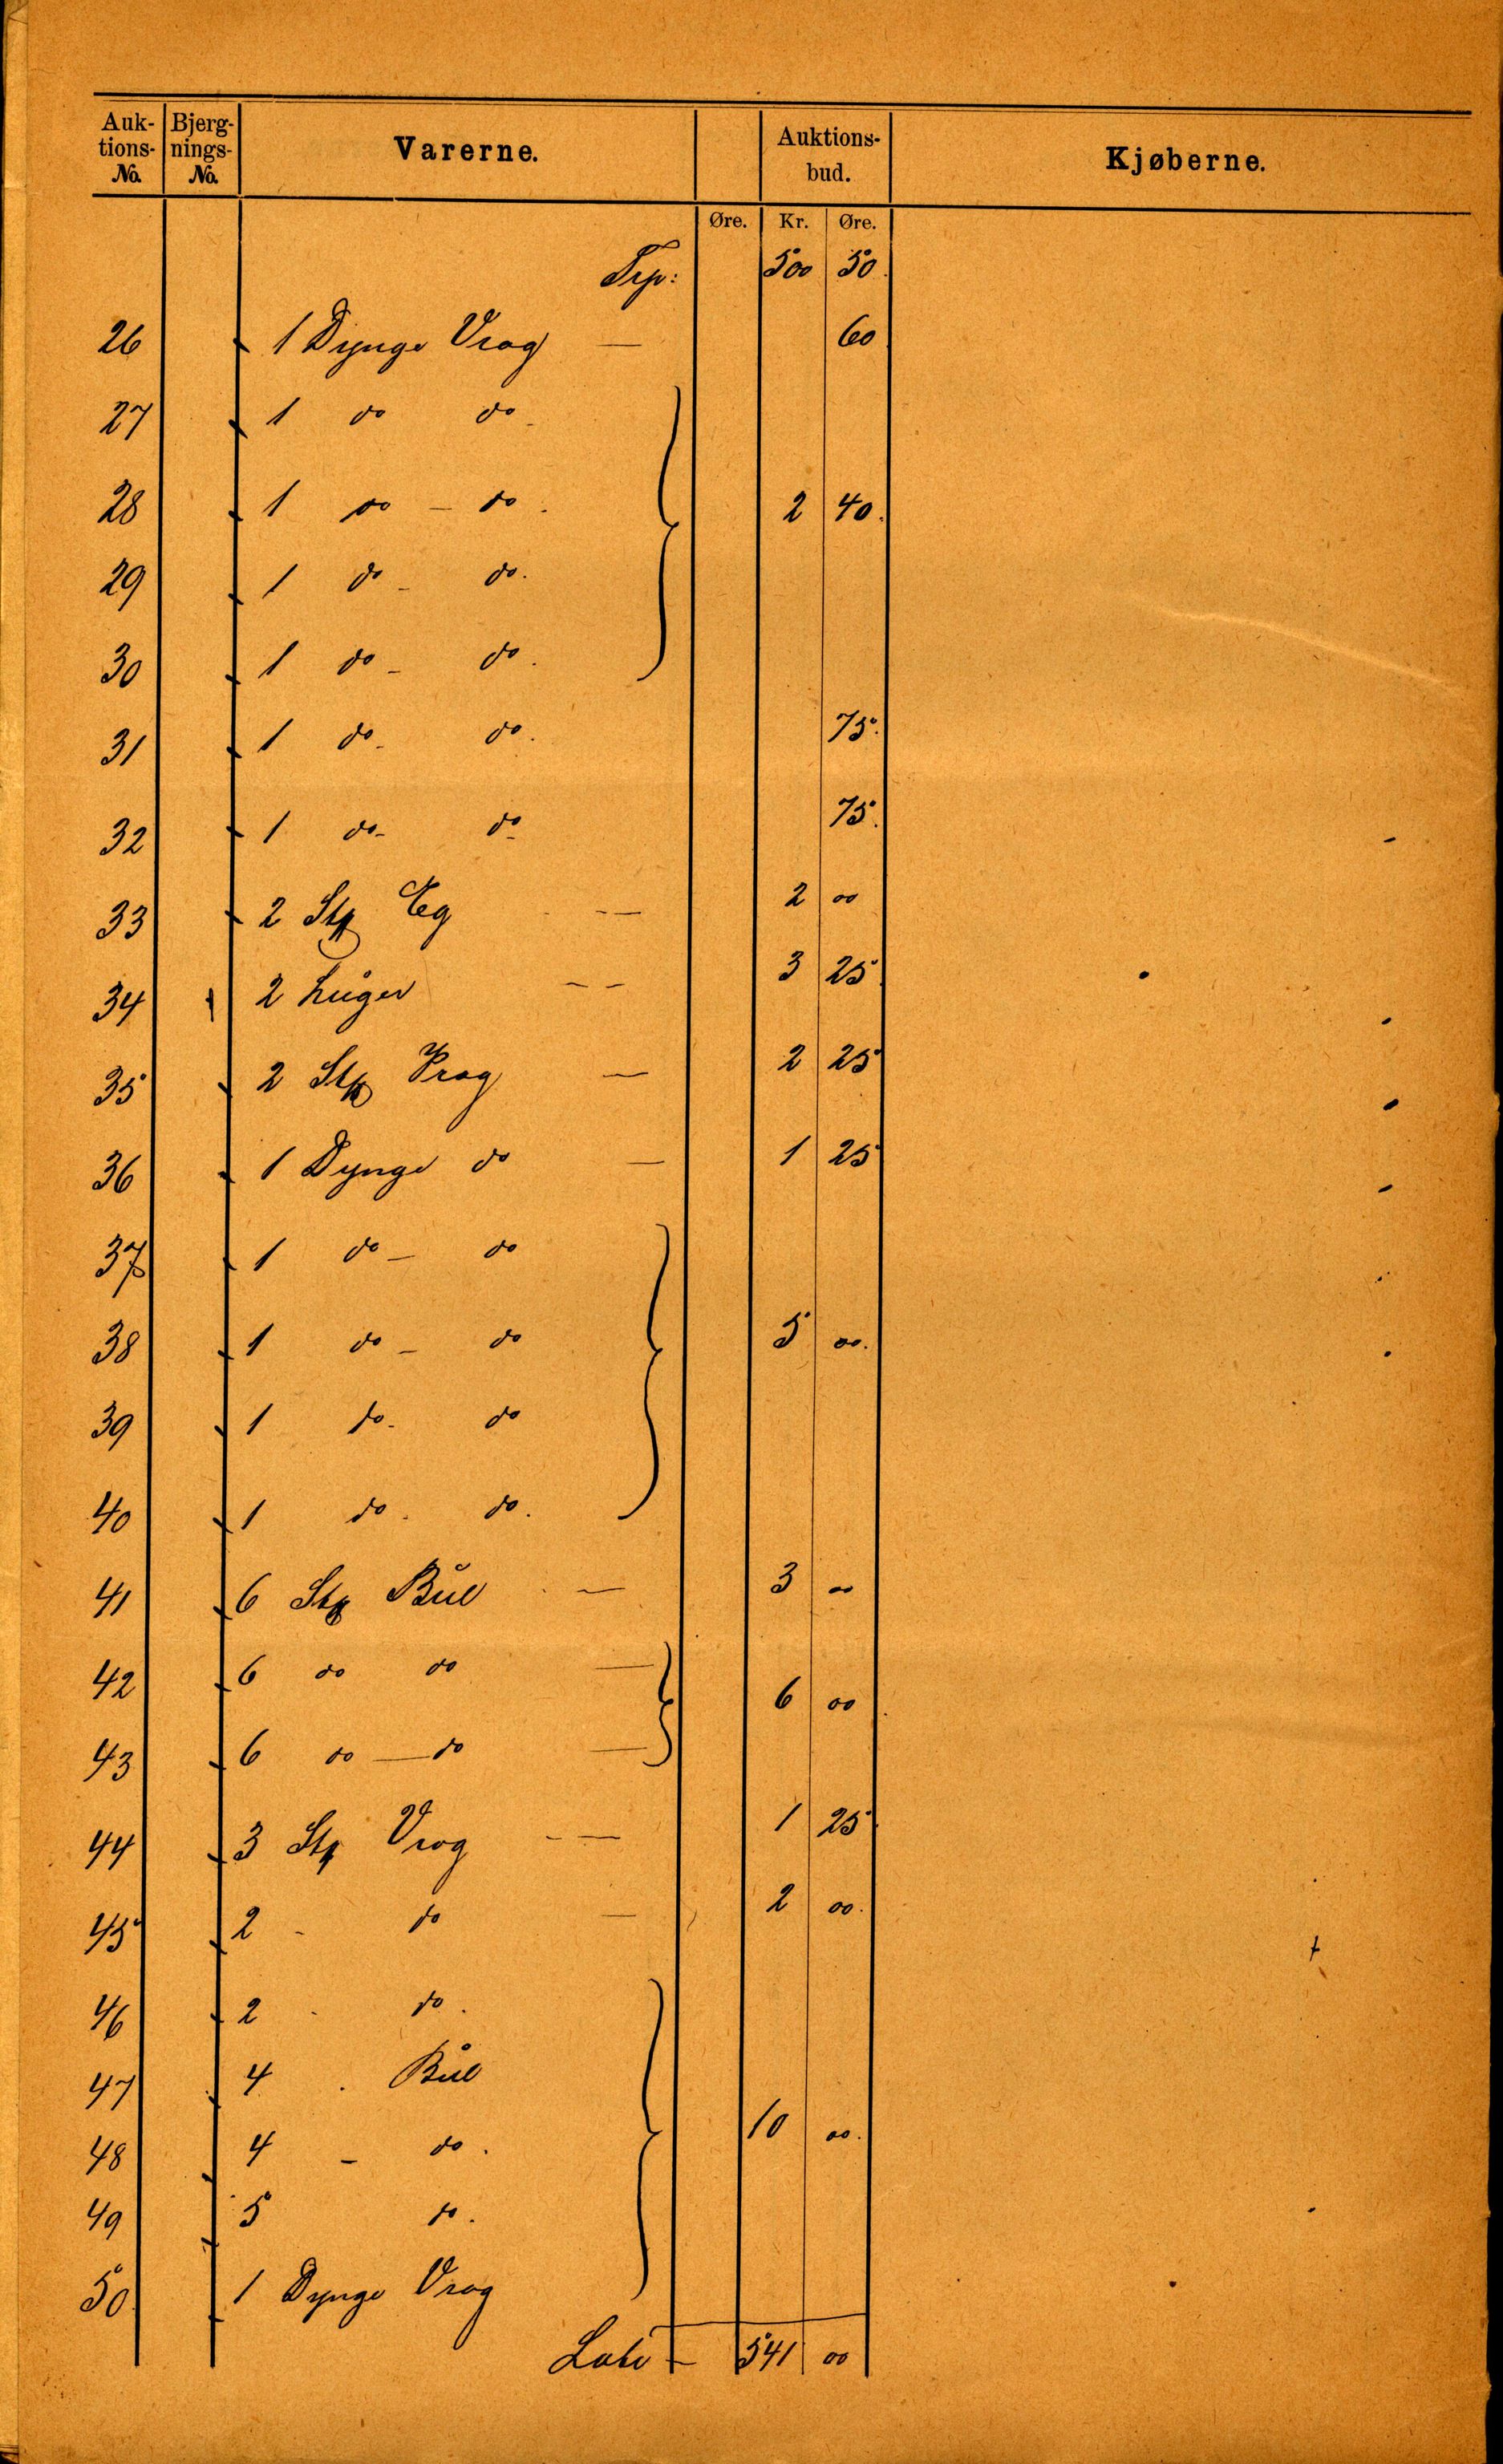 Auktions-No. Bjergnings-No. Varerne. Auktionsbud. Kjøberne.
Øre. Kr. Øre.
Trp: 500 50.
26 1 Dynge Vrag — 60
27 1 do do
28 1 do — do. 2 40.
29 1 do - do.
30 1 do - do.
31 1 do - do. 75.
32 1 do - do 75.
33 2 Stk Eg — 2 00
34 2 Luger — — 3 25
35 2 Stk Vrag — 2 25
36 1 Dynge do — 1 25
37 1 do — do
38 1 do — do 5 00.
39 1 do - do
40 1 do. do.
41 6 Stk Bul — 3 00
42 6 do do — 6 00
43 6 do — do —
44 3 Stk Vrag — 1 25
45 2 - do — 2 00.
46 2 - do.
47 4 . Bul
48 4 - do. 10 00.
49 5 do.
50 1 Dynge Vrag
Latr — 541 00